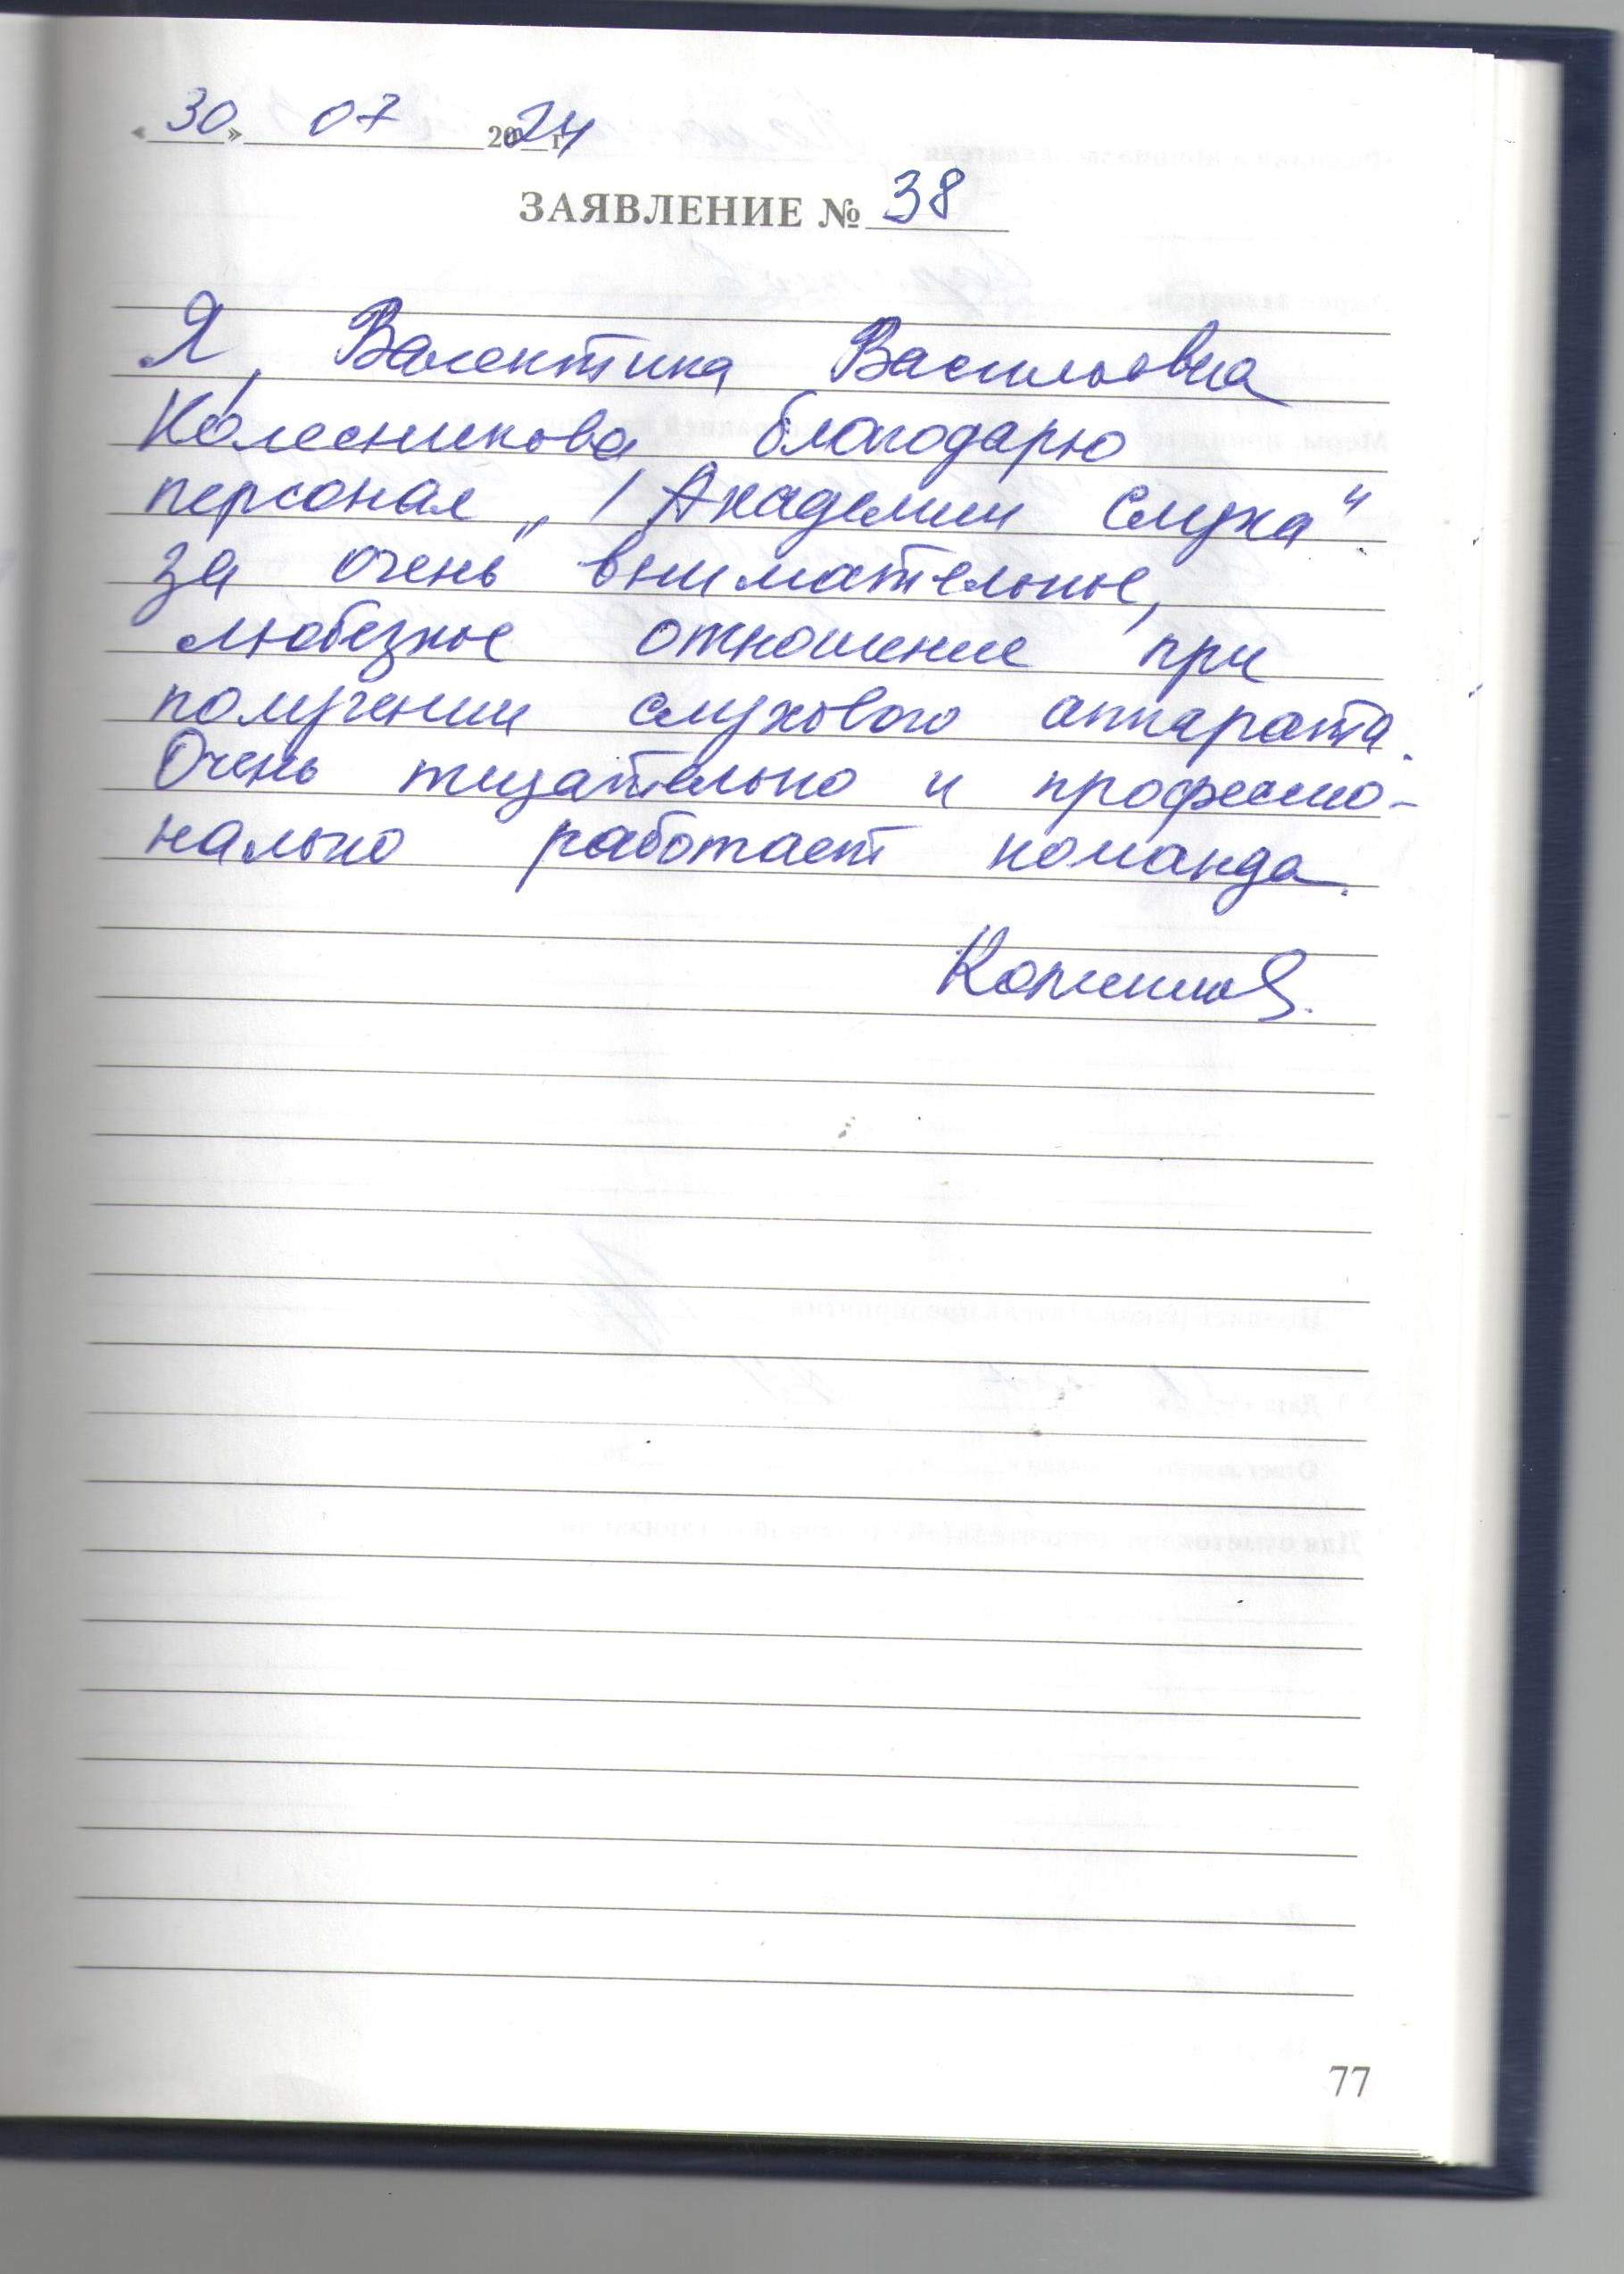 «30» 07 2024 г
ЗАЯВЛЕНИЕ № 38
Я, Валентина Васильевна
Колесникова благодарю
персонал „ Академии слуха“
за очень внимательное,
любезное отношение при
получении слухового аппарата.
Очень тщательно и профессио-
нально работает команда.
77